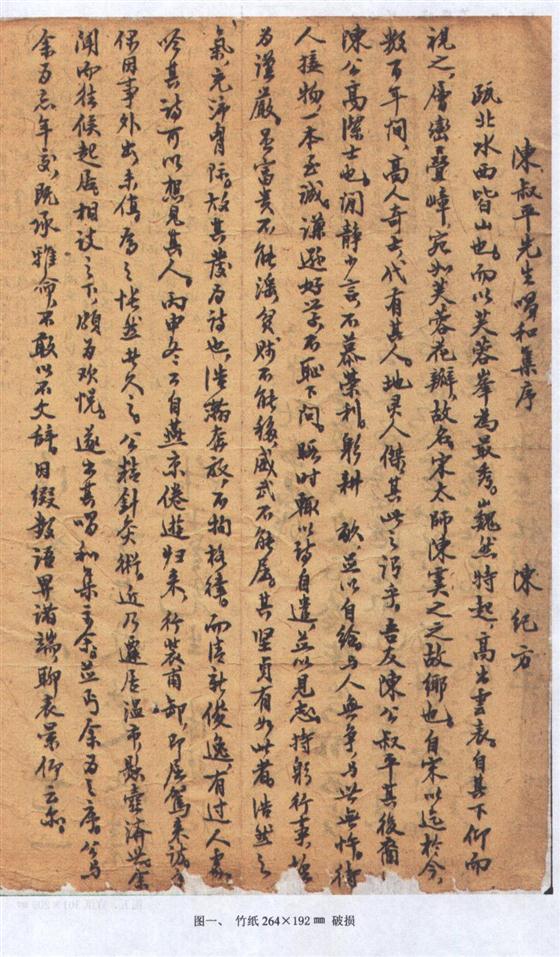 陳叔平先生唱和集序 陳紀方
瓯北水西皆山也。而以芙蓉峯為最秀。巍然特起，高出雲表。自其下仰而
視之，層巒疊嶂，宛如芙蓉花瓣，故名。宋太師陳寔之之故鄉也。自宋以迄於今，
数百年间，高人奇士，代有其人。地灵人傑，其此之谓乎。吾友陳公叔平其後裔
陳公高潔士也。閒静少言，不慕榮利。躬耕 畝，並以自给。与人無争，与世無忤。待
人接物，一本至诚。谦逊好学，不恥下问。暇时辄以詩自遣，並以見志。持躬行事，
为谨嚴。是富貴不能淫，贫贱不能移，威武不能屈。其坚貞有如此者。浩然之
氣，充沛胃际。故其發为詩也，浩瀚奔放，不拘格律。而清新俊逸，有过人處。
吟其詩可以想見其人。丙申冬公自燕京倦遊归来，行裝甫卸，即屈驾来诚，
保因事外出未傷为之怅然共久之。公精針灸術。近乃遷居温市，懸壺濟世。余
闻而往候起居，相谈之下，頗为欢悦。遂出其唱和集予余，並丐余为之序。公与
余为忘年交，既承雅命，不敢以不文辞。因缀数语畀诸端，聊表景仰云尔。
图一、 竹纸 264×192 ㎜ 破损